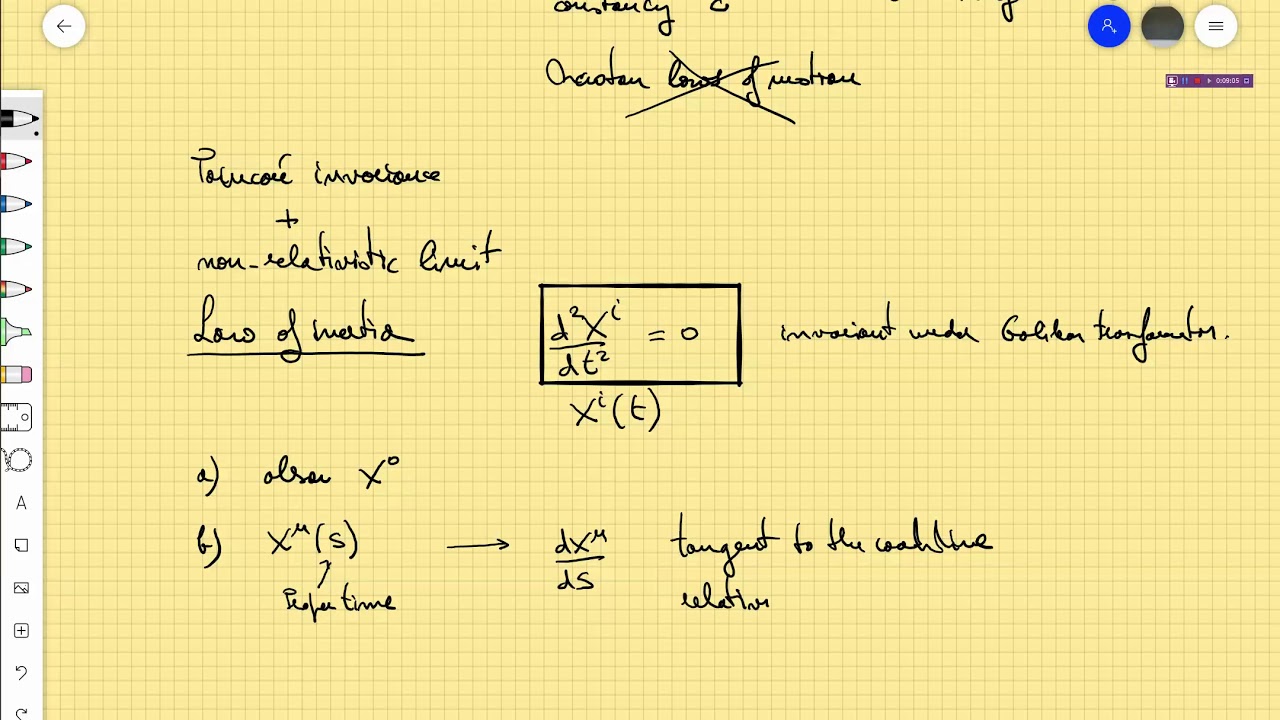 constancy c
Newtonian laws of motion
Poincaré invariance
+
non-relativistic limit
Law of inertia
d²Xⁱ/dt² = 0 invariant under Galilean transformation.
Xⁱ(t)
a) absent X⁰
b) X^μ(s) → dX^μ/ds tangent to the worldline
Proper time relativis
0:09:05
A